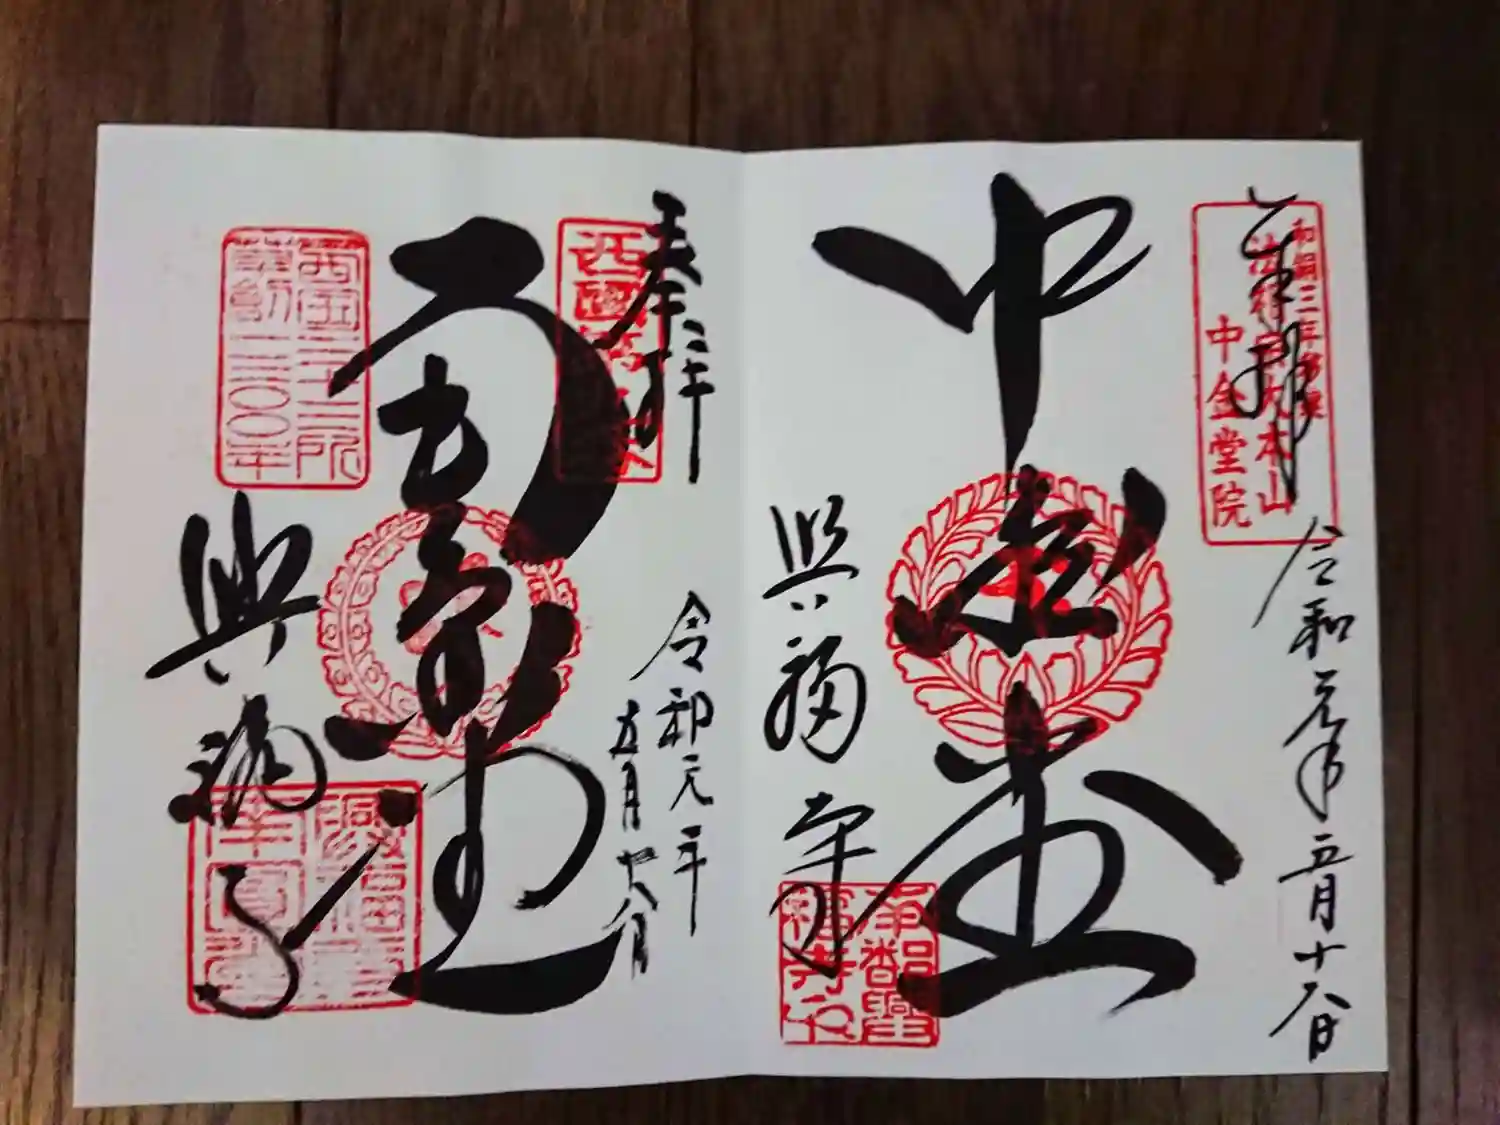 奉拝
和銅三年創業
法相宗大本山
中金堂院
令和元年五月十八日
中金堂
興福寺
奉拝
西國第九番
令和元年
五月十八日
南円堂
西国三十三所
草創一三〇〇年
興福寺